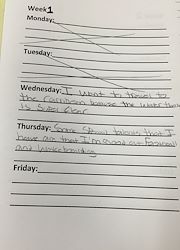 Week1
Monday:
Tuesday:
Wednesday: I want to travel to
the carribean because the water there
is super clear
Thursday: Some special talents that I
have are that I'm good at football
and
Friday: